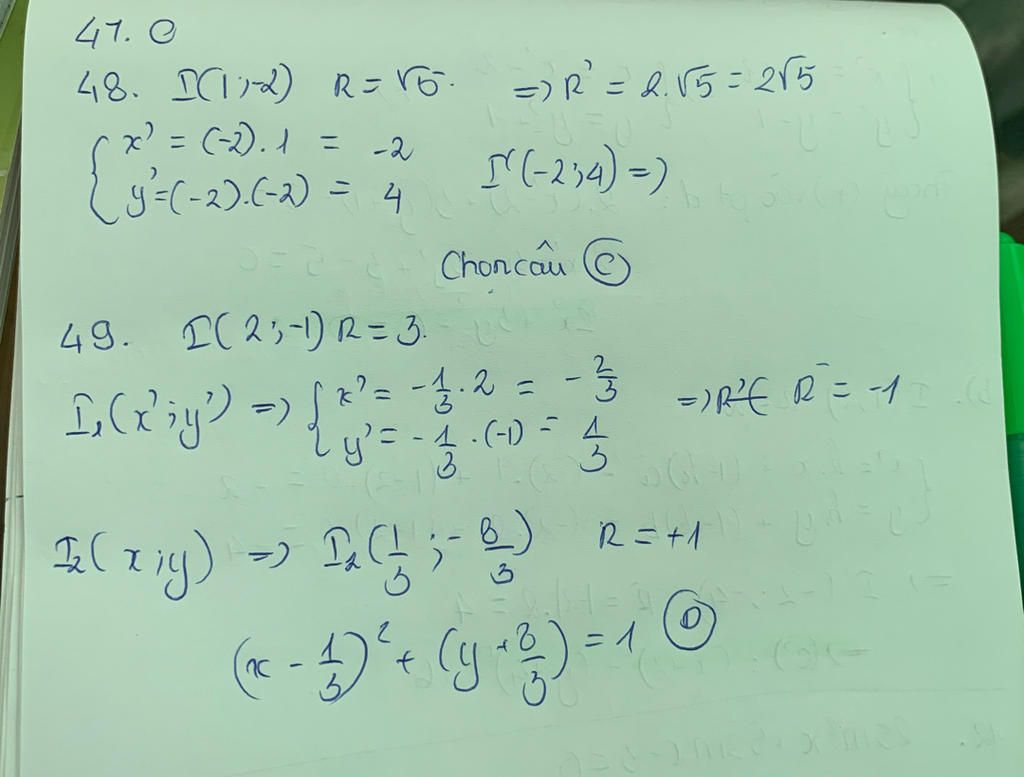 47. C
48. I(1;-2) R = √5. => R' = 2.√5 = 2√5
{ x' = (-2).1 = -2
y' = (-2).(-2) = 4 I'(-2;4) =>
Chọn câu C
49. I(2;-1) R = 3.
I₁(x';y') => { x' = -1/3 . 2 = -2/3 => R' R = -1
y' = -1/3 . (-1) = 1/3
I₂(x;y) => I₂(1/3 ; -8/3) R = +1
(x - 1/3)² + (y + 8/3) = 1 D